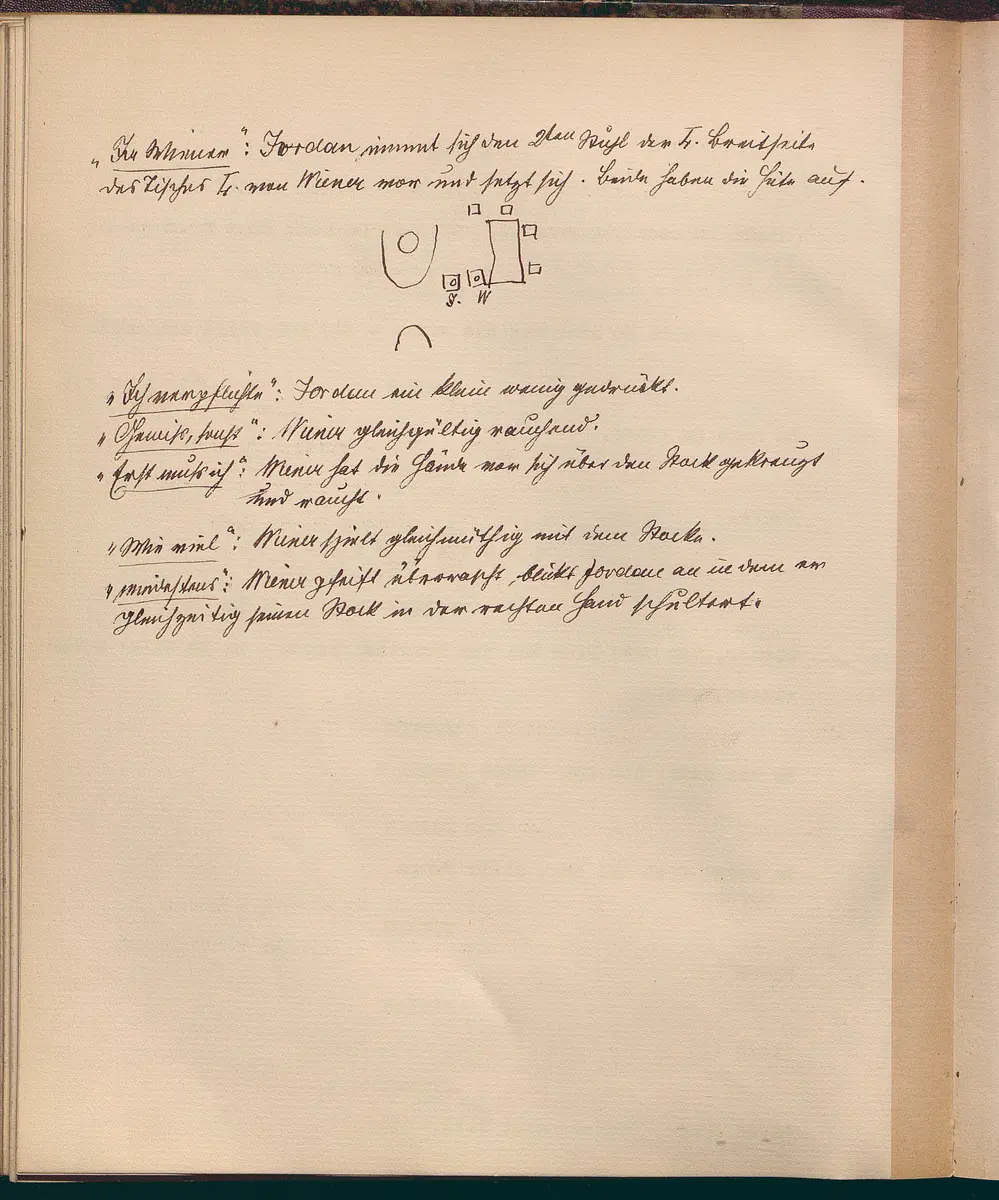 „Zu Wiener“: Jordan nimmt sich den 2ten Stuhl der l. Breitseite
des Tisches l. von Wiener vor und setzt sich. Beide haben die Hüte auf.
J. W
„Ich verpflichte“: Jordan ein klein wenig gedrückt.
„Gewiß, sonst“: Wiener gleichgültig rauchend.
„Erst muß ich“: Wiener hat die Hände vor sich über den Stock gekreuzt
und raucht.
„Wie viel“: Wiener spielt gleichmüthig mit dem Stocke.
„mindestens“: Wiener pfeift überrascht, blickt Jordan an in dem er
gleichzeitig seinen Stock in der rechten Hand schultert.